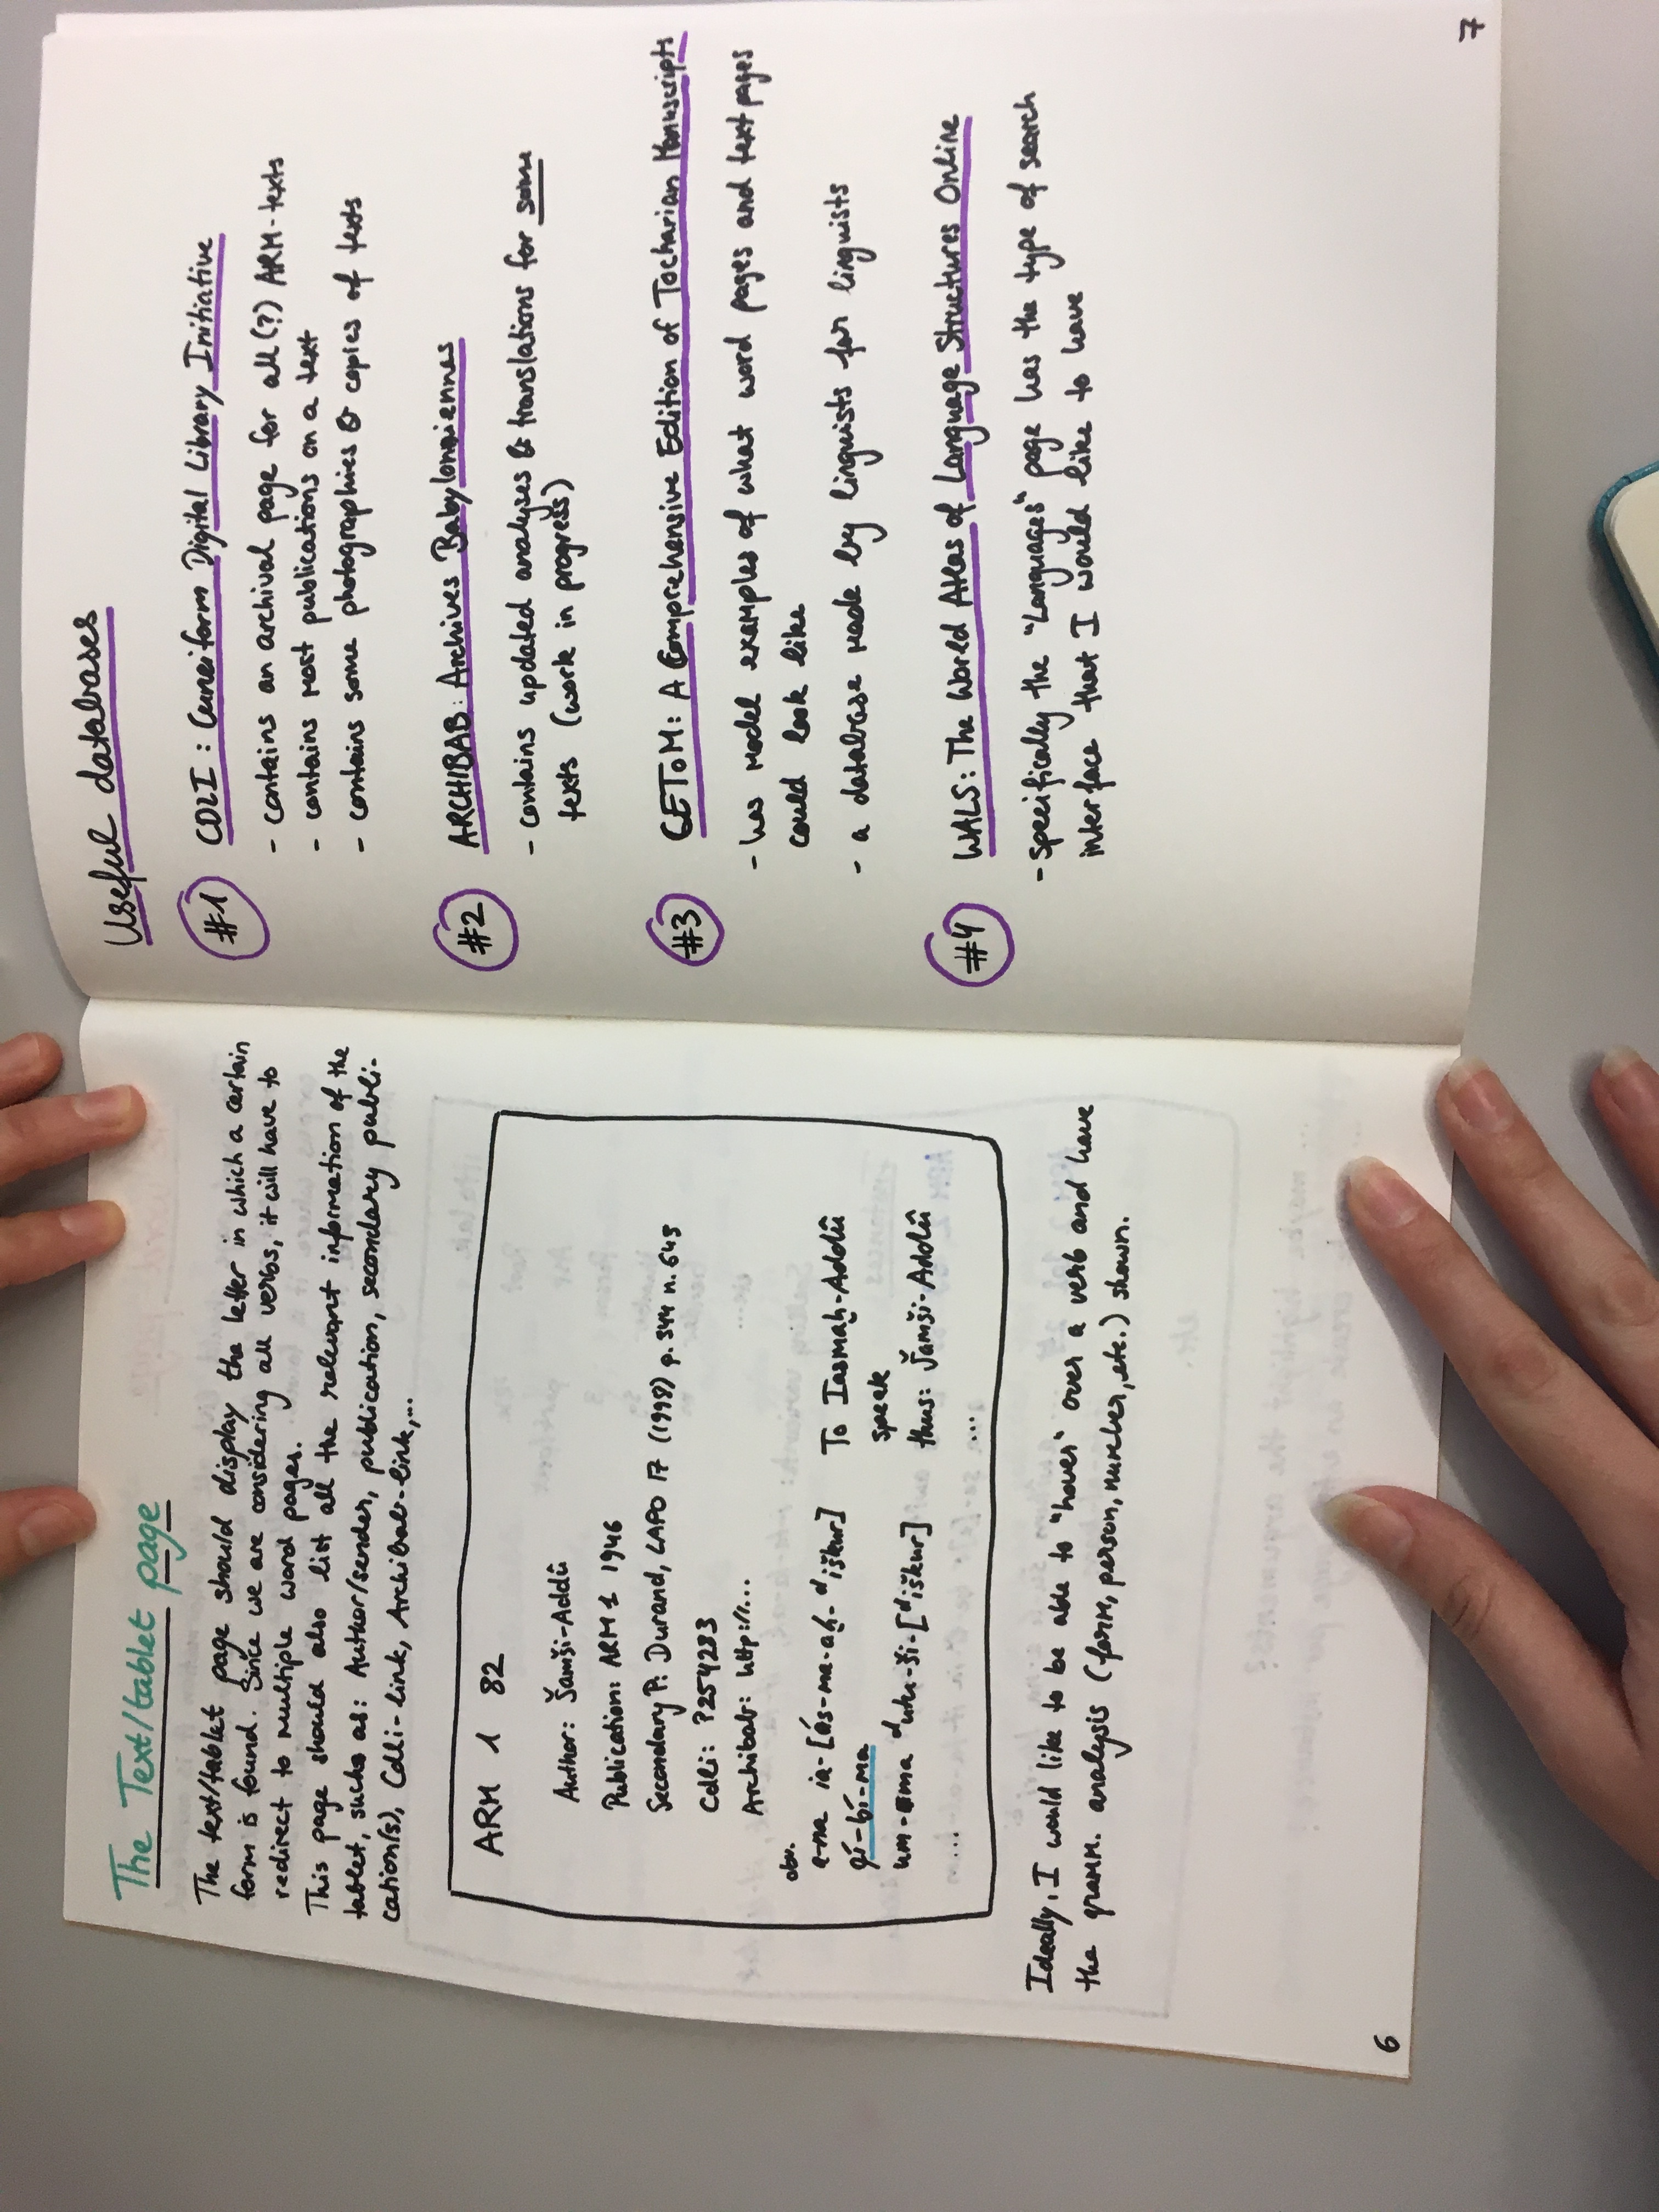 The Text/tablet page
The text/tablet page should display the letter in which a certain
form is found. Since we are considering all verbs, it will have to
redirect to multiple word pages.
This page should also list all the relevant information of the
tablet, such as: Author/sender, publication, secondary publi-
cation(s), Cdli-link, Archibab-link,...
ARM 1 82
Author: Šamši-Addû
Publication: ARM 1 1946
Secondary P.: Durand, LAPO 17 (1998) p. 344 n. 645
Cdli: P254283
Archibab: http://...
obv.
a-na ia-[ás-ma-aḫ-ᵈiškur] To Iasmaḫ-Addû
qí-bí-ma speak
um-ma ᵈutu-ši-[ᵈiškur] thus: Šamši-Addû
... ...
Ideally, I would like to be able to "hover" over a verb and have
the gramm. analysis (form, person, number, etc.) shown.
6
Useful databases
#1 CDLI: Cuneiform Digital Library Initiative
- contains an archival page for all(?) ARM-texts
- contains most publications on a text
- contains some photographies & copies of texts
#2 ARCHIBAB: Archives Babyloniennes
- contains updated analyses & translations for some
texts (work in progress)
#3 CEToM: A Comprehensive Edition of Tocharian Manuscripts
- has model examples of what word pages and text pages
could look like
- a database made by linguists for linguists
#4 WALS: The World Atlas of Language Structures Online
- specifically the "Languages" page has the type of search
interface that I would like to have
7